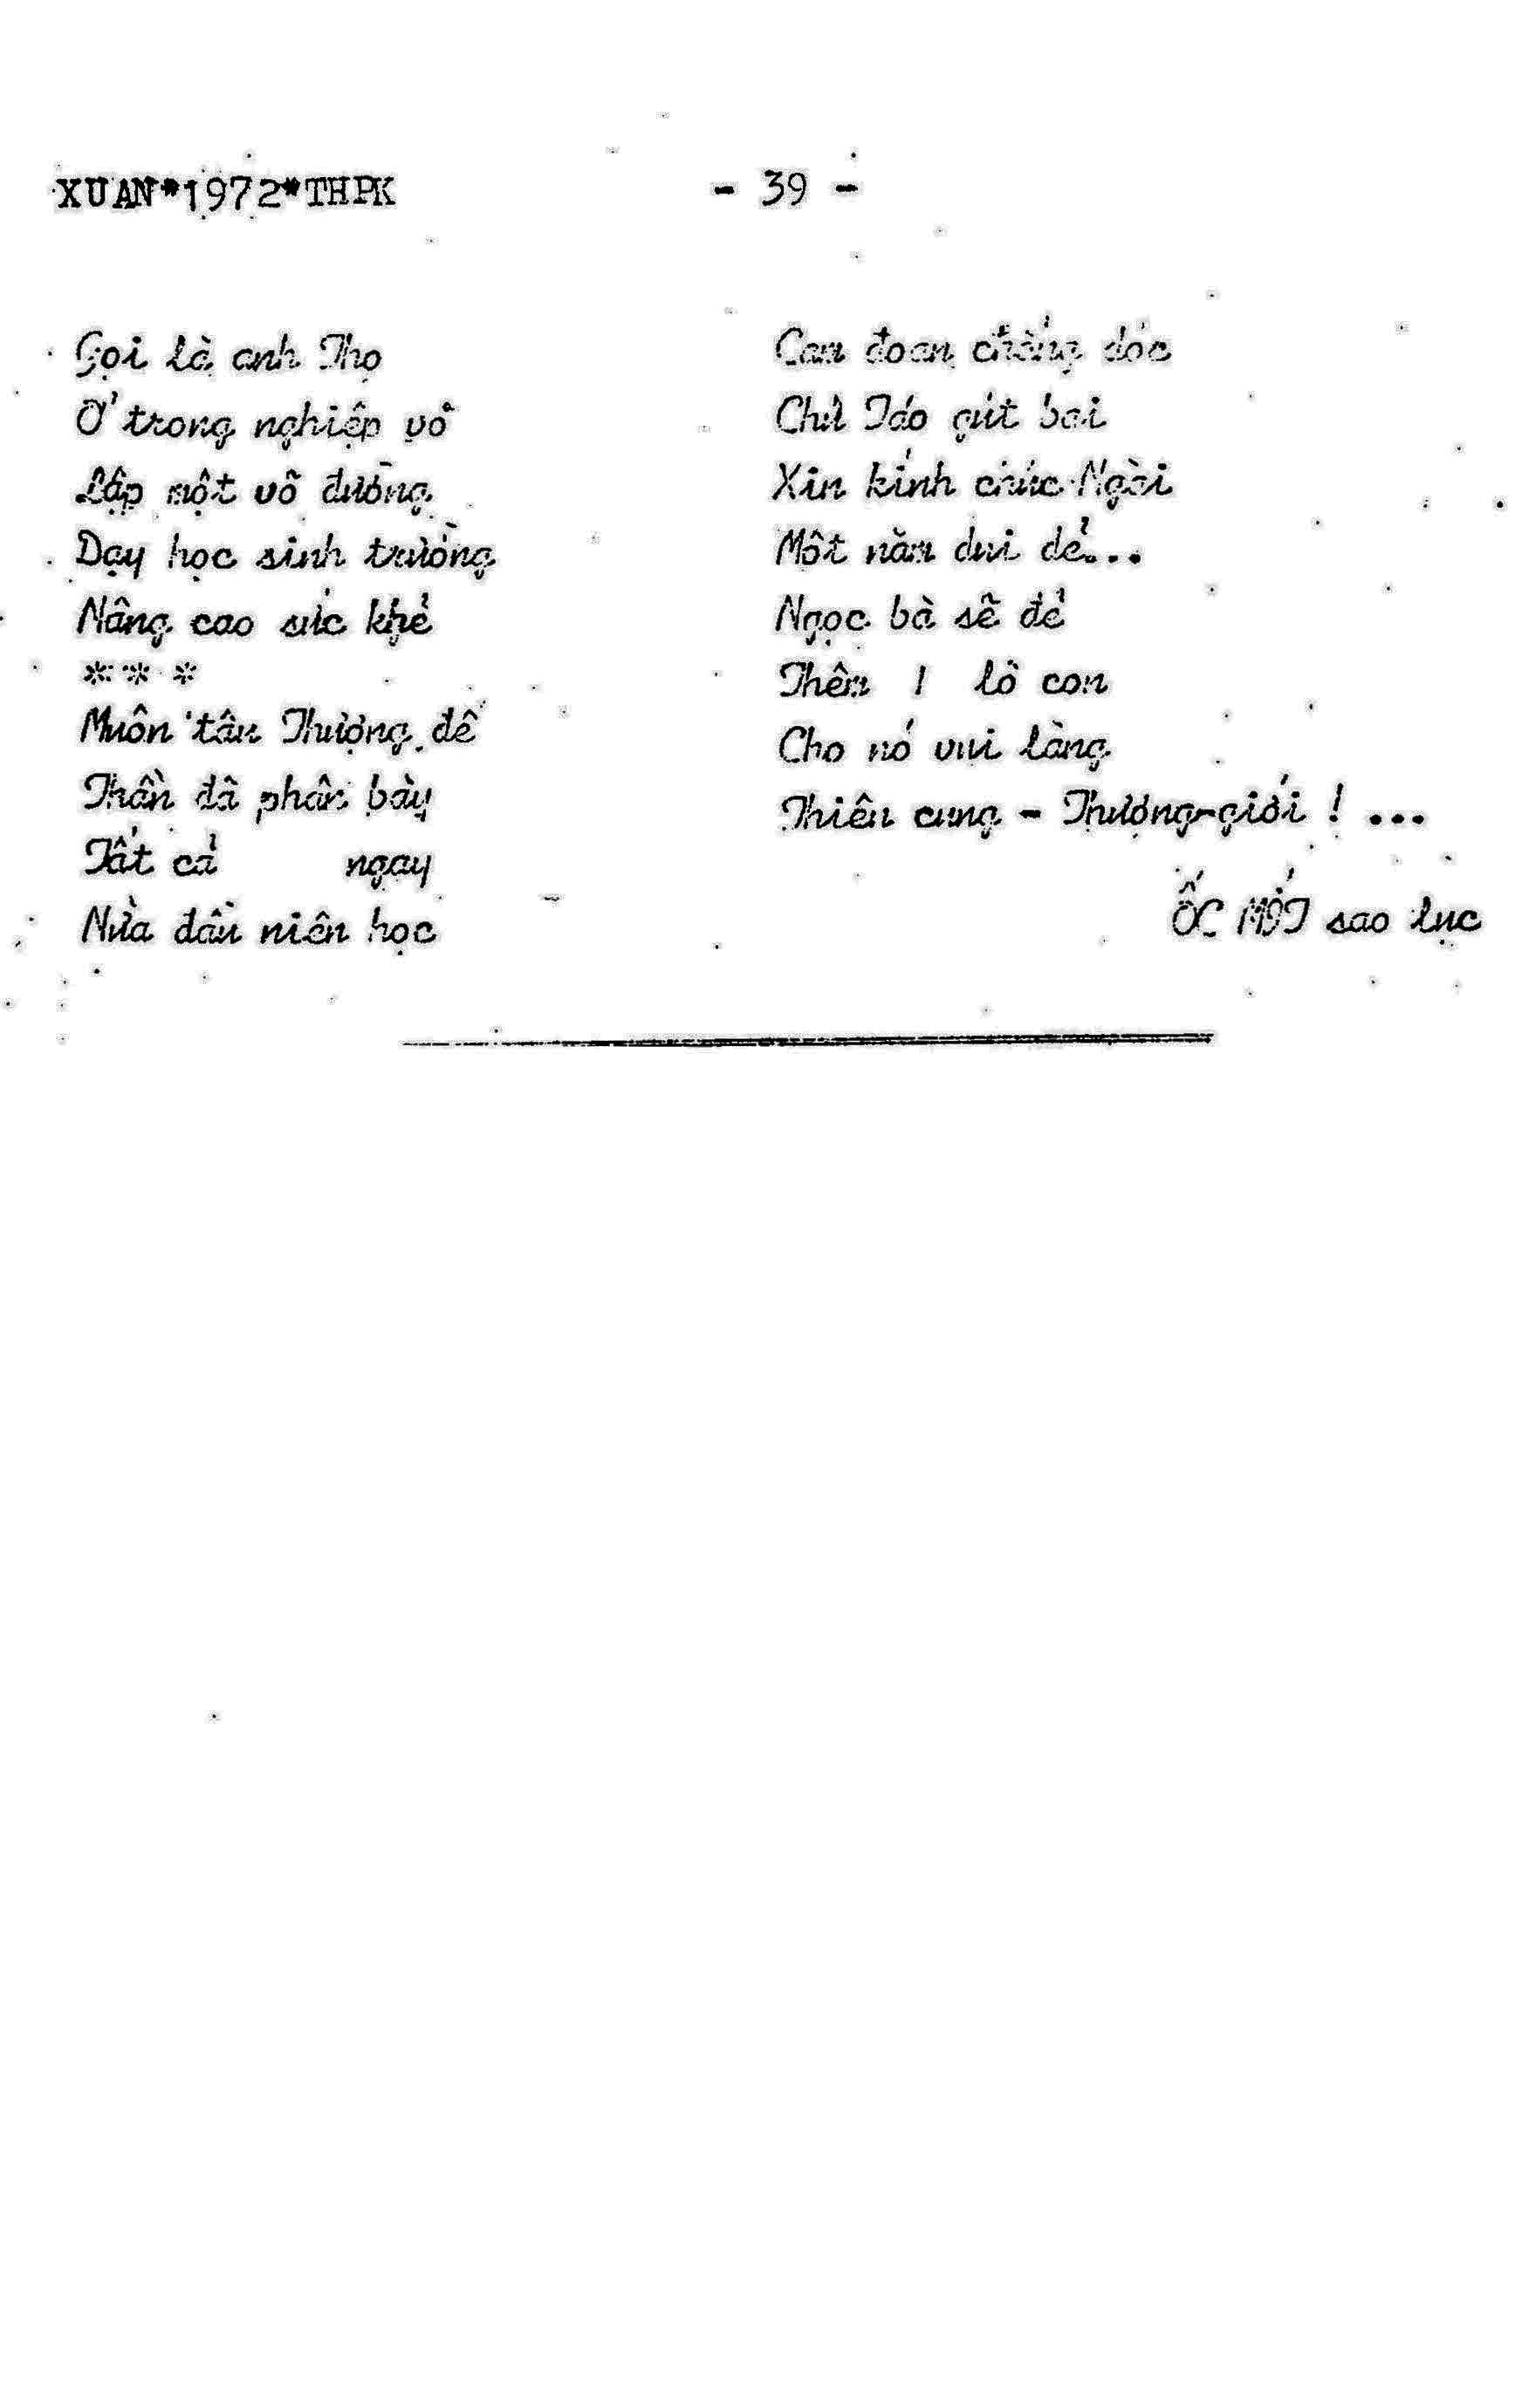 XUAN*1972*THPK
- 39 -
Gọi là anh Thọ
Ở trong nghiệp võ
Lập một võ đường
Dạy học sinh trường
Nâng cao sức khẻ
***
Muôn tâu Thượng đế
Thần đã phân bày
Tất cả ngay
Nửa đầu niên học
Cam đoan chẳng dóc
Chử Táo gút bai
Xin kính chúc Ngài
Một năm dui dẻ...
Ngọc bà sẽ đẻ
Thêm 1 lô con
Cho nó vui làng
Thiên cung - Thượng-giới ! ...
ỐC MỚT sao lục